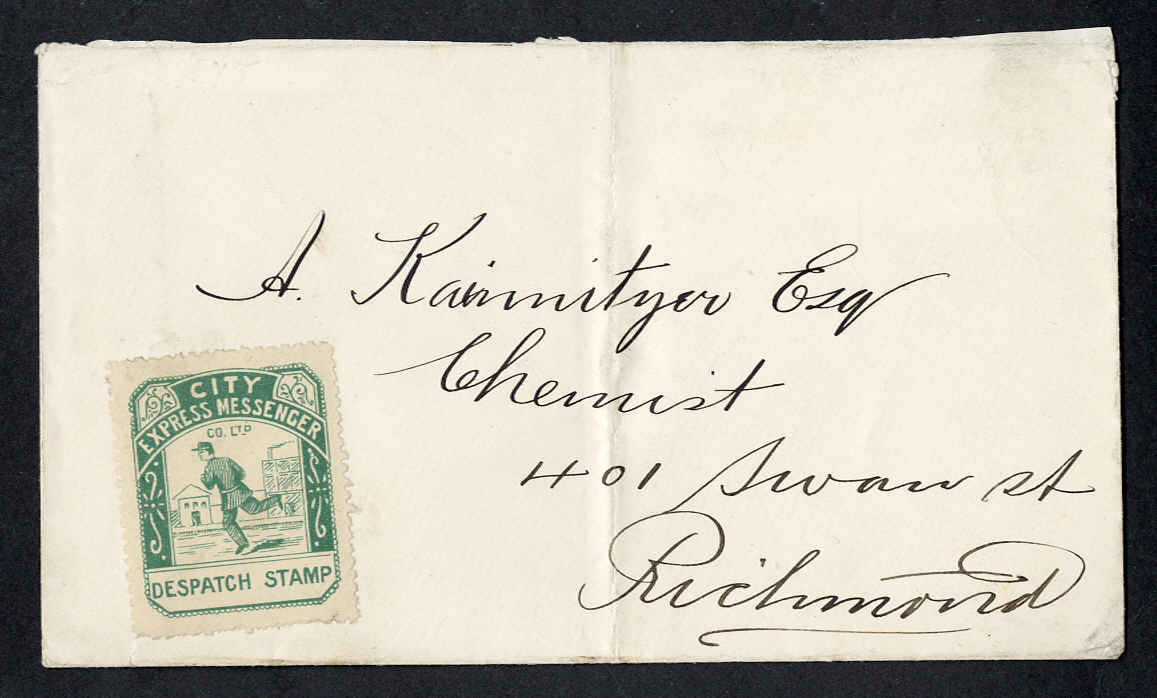 A. Esq
Chemist
401 Swan st
Richmond
CITY
EXPRESS MESSENGER
CO. LTD
DESPATCH STAMP